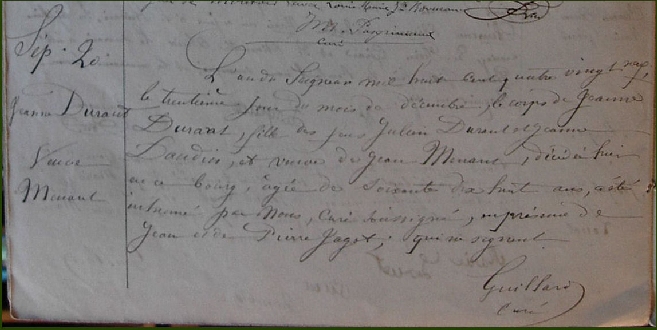 Sép. 20
Jeanne Durant
Veuve
Menant
curé
L'an du Seigneur mil huit cent quatre vingt
le trentième jour du mois de décembre, le corps de Jeanne
Durant, fille des feus Julien Durant et Jeanne
et veuve de Jean Menant, décédée hier
en ce bourg, âgée de soixante dix huit ans, a été
inhumé par Nous, Curé soussigné, en présence de
Jean et de Pierre Pagot; qui ne signent
Guillard
curé